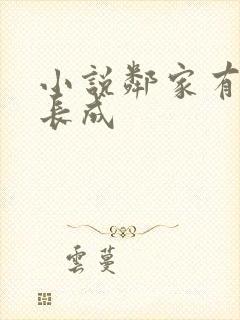 小說鄰家有
長成
雲蔓